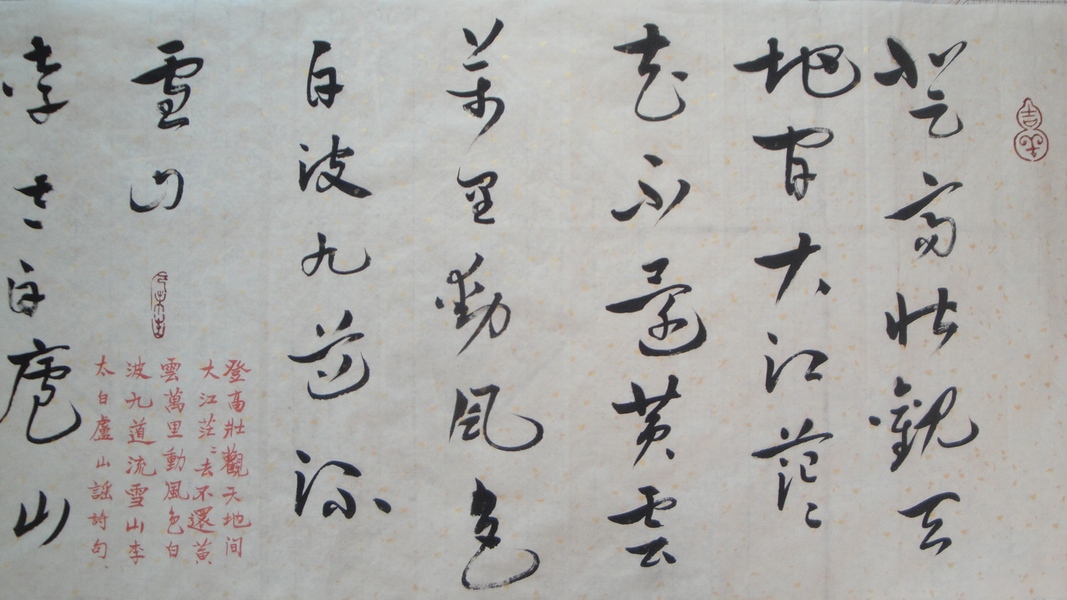 登高壯觀天
地間大江茫〻
去不還黃雲
萬里動風色
白波九道流
雪山
李太白廬山
登高壯觀天地間
大江茫〻去不還黃
雲萬里動風色白
波九道流雪山李
太白廬山謠詩句